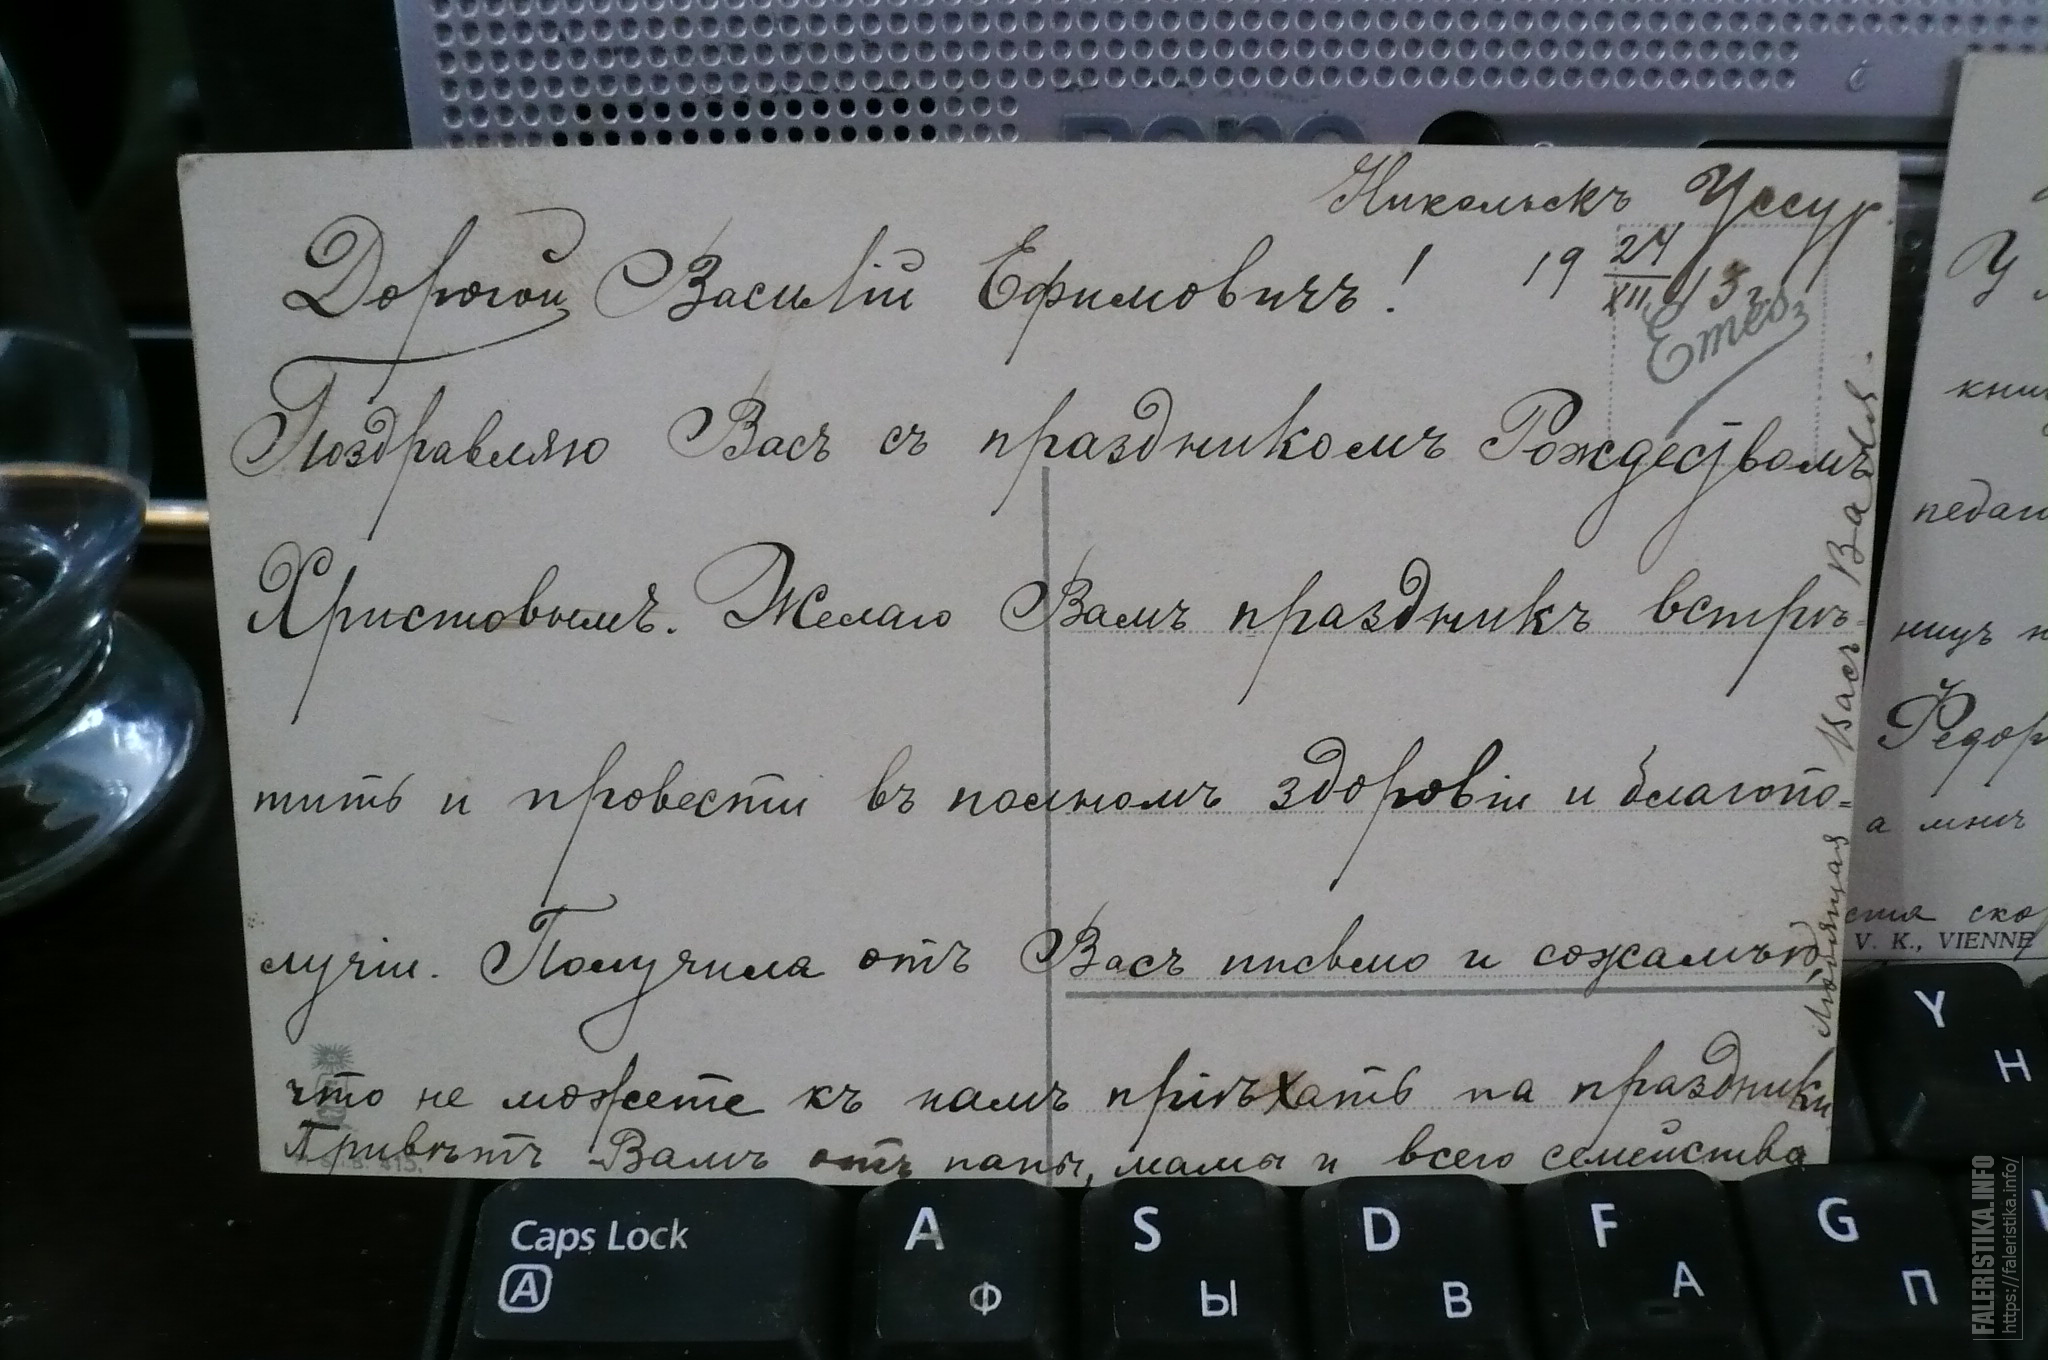 i
Никольскъ Уссур.
19 24/XII 13 г.
Дорогой Василій Ефимовичъ!
Поздравляю Васъ съ праздникомъ Рождествомъ
Христовымъ. Желаю Вамъ праздникъ встрѣ-
тить и провести въ полномъ здоровіи и благопо-
лучіи. Получила отъ Васъ письмо и сожалѣю,
что не можете къ намъ пріѣхать на праздники
Привѣтъ Вамъ отъ папы, мамы и всего семейства
Любящая Васъ Валя.
У
книг
педаг
ницъ
Федор
а мнѣ
V. K., VIENNE
Y
Н
Caps Lock
A
A
Ф
S
Ы
D
В
F
А
G
П
FALERISTIKA.INFO
https://faleristika.info/